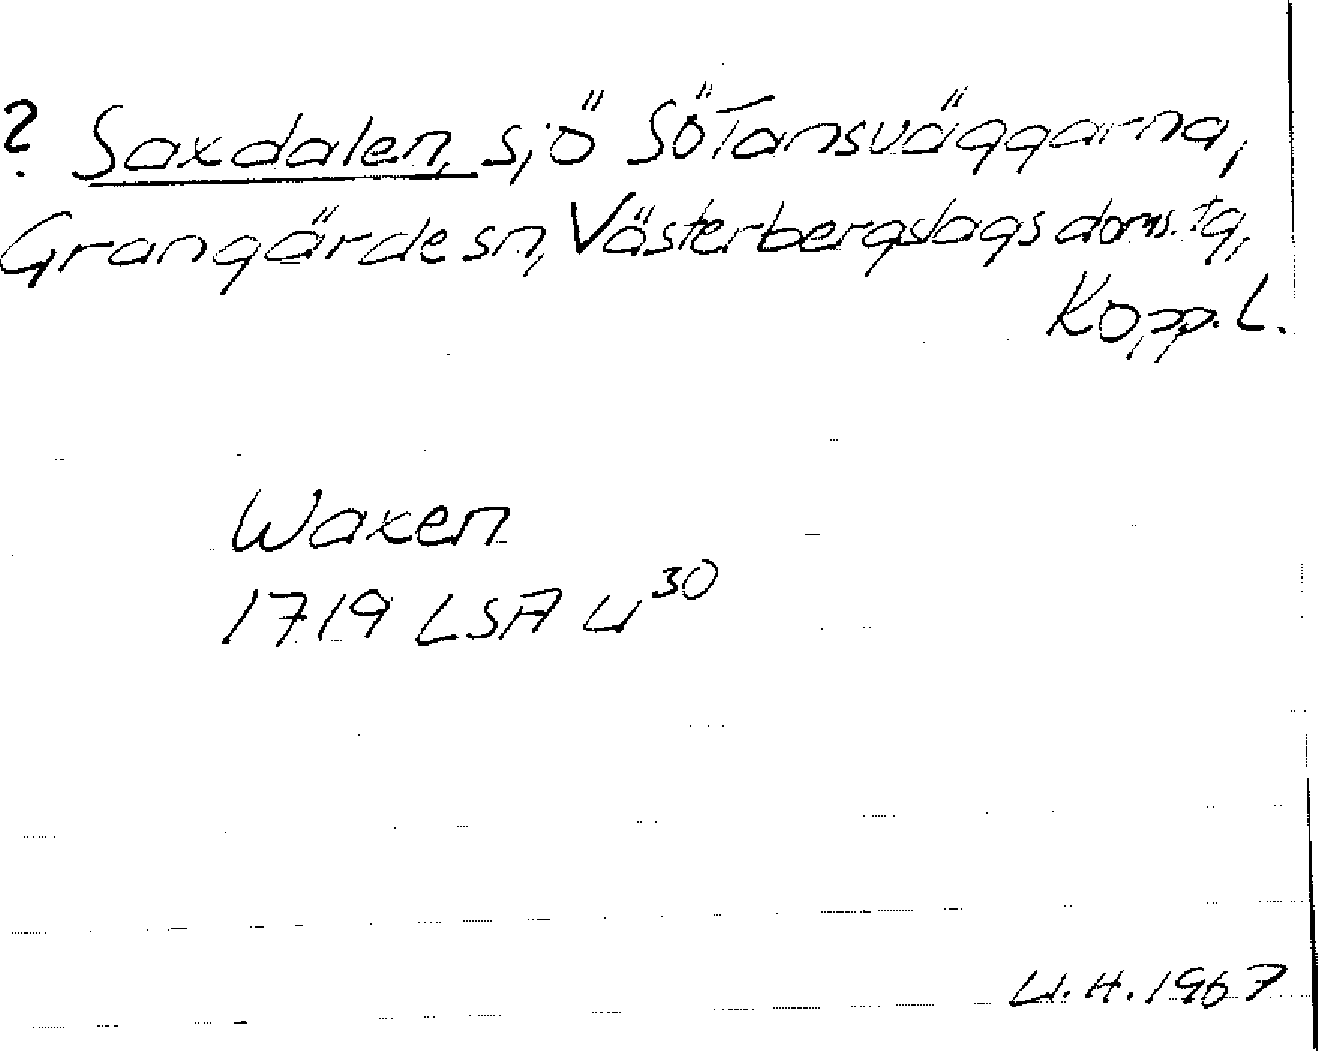 ? Saxdalen, sjö SÖ Tansväggarna,
Grangärde sn, Västerbergslags doms. tg,
Kopp. L.
Waxen
1719 LSA U 30
U. H. 1967